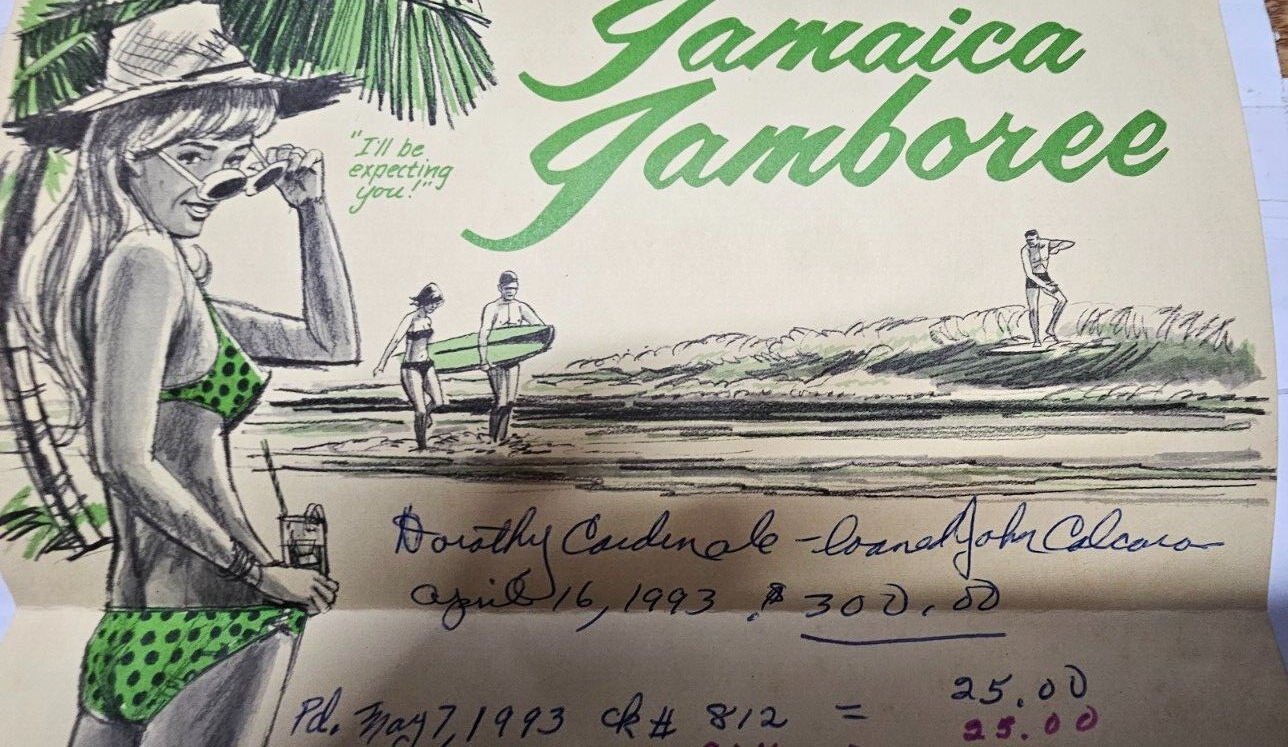 Jamaica
Jamboree
"I'll be
expecting
you!"
Dorothy Cardinale - loaned John Calcara
April 16, 1993 $ 300.00
Pd. May 7, 1993 ck # 812 = 25.00
25.00